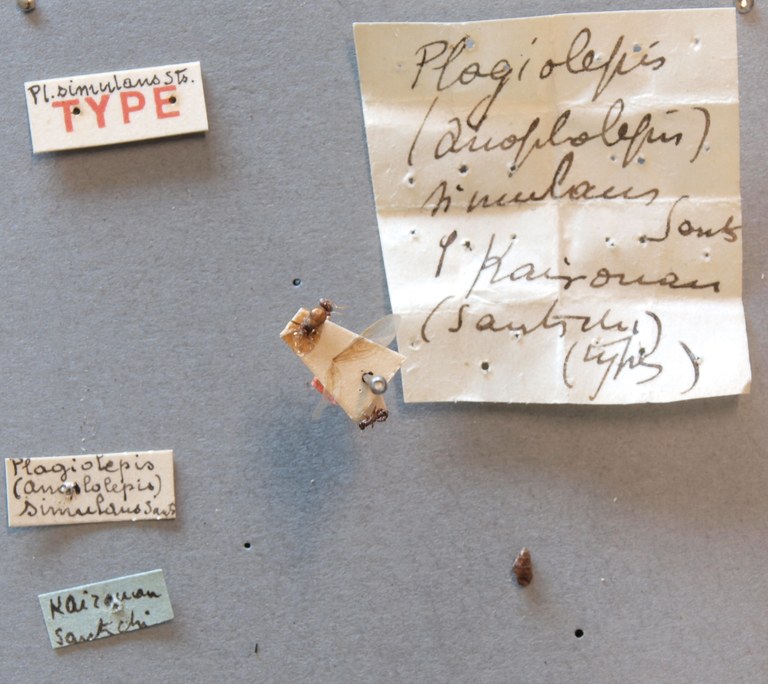 Pl. simulans Sts.
TYPE
Plagiolepis
(Anoplolepis)
simulans
Sants
Kairouan
(Santschi)
(types)
Plagiolepis
(Anoplolepis)
simulans Sants
Kairouan
Santschi